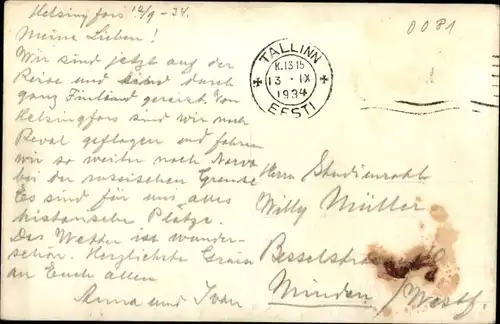 Helsingfors 12/9 - 34.
Meine Lieben!
Wir sind jetzt auf der
Reise und sind durch
ganz Finland gereist. Von
Helsingfors sind wir nach
Reval geflogen und fahren
wir so weiter nach Narva
bei der russischen Grense
Es sind für uns alles
historische Platze.
Das Wetter ist wunder-
schön. Herzlichste Grüsse
an Euch allen
Anna und Ivan
0081
TALLINN
K.13 15
13 · IX
1934
EESTI
Herrn Studienrath
Willy Müller
Besselstrasse
Minden /Westf.